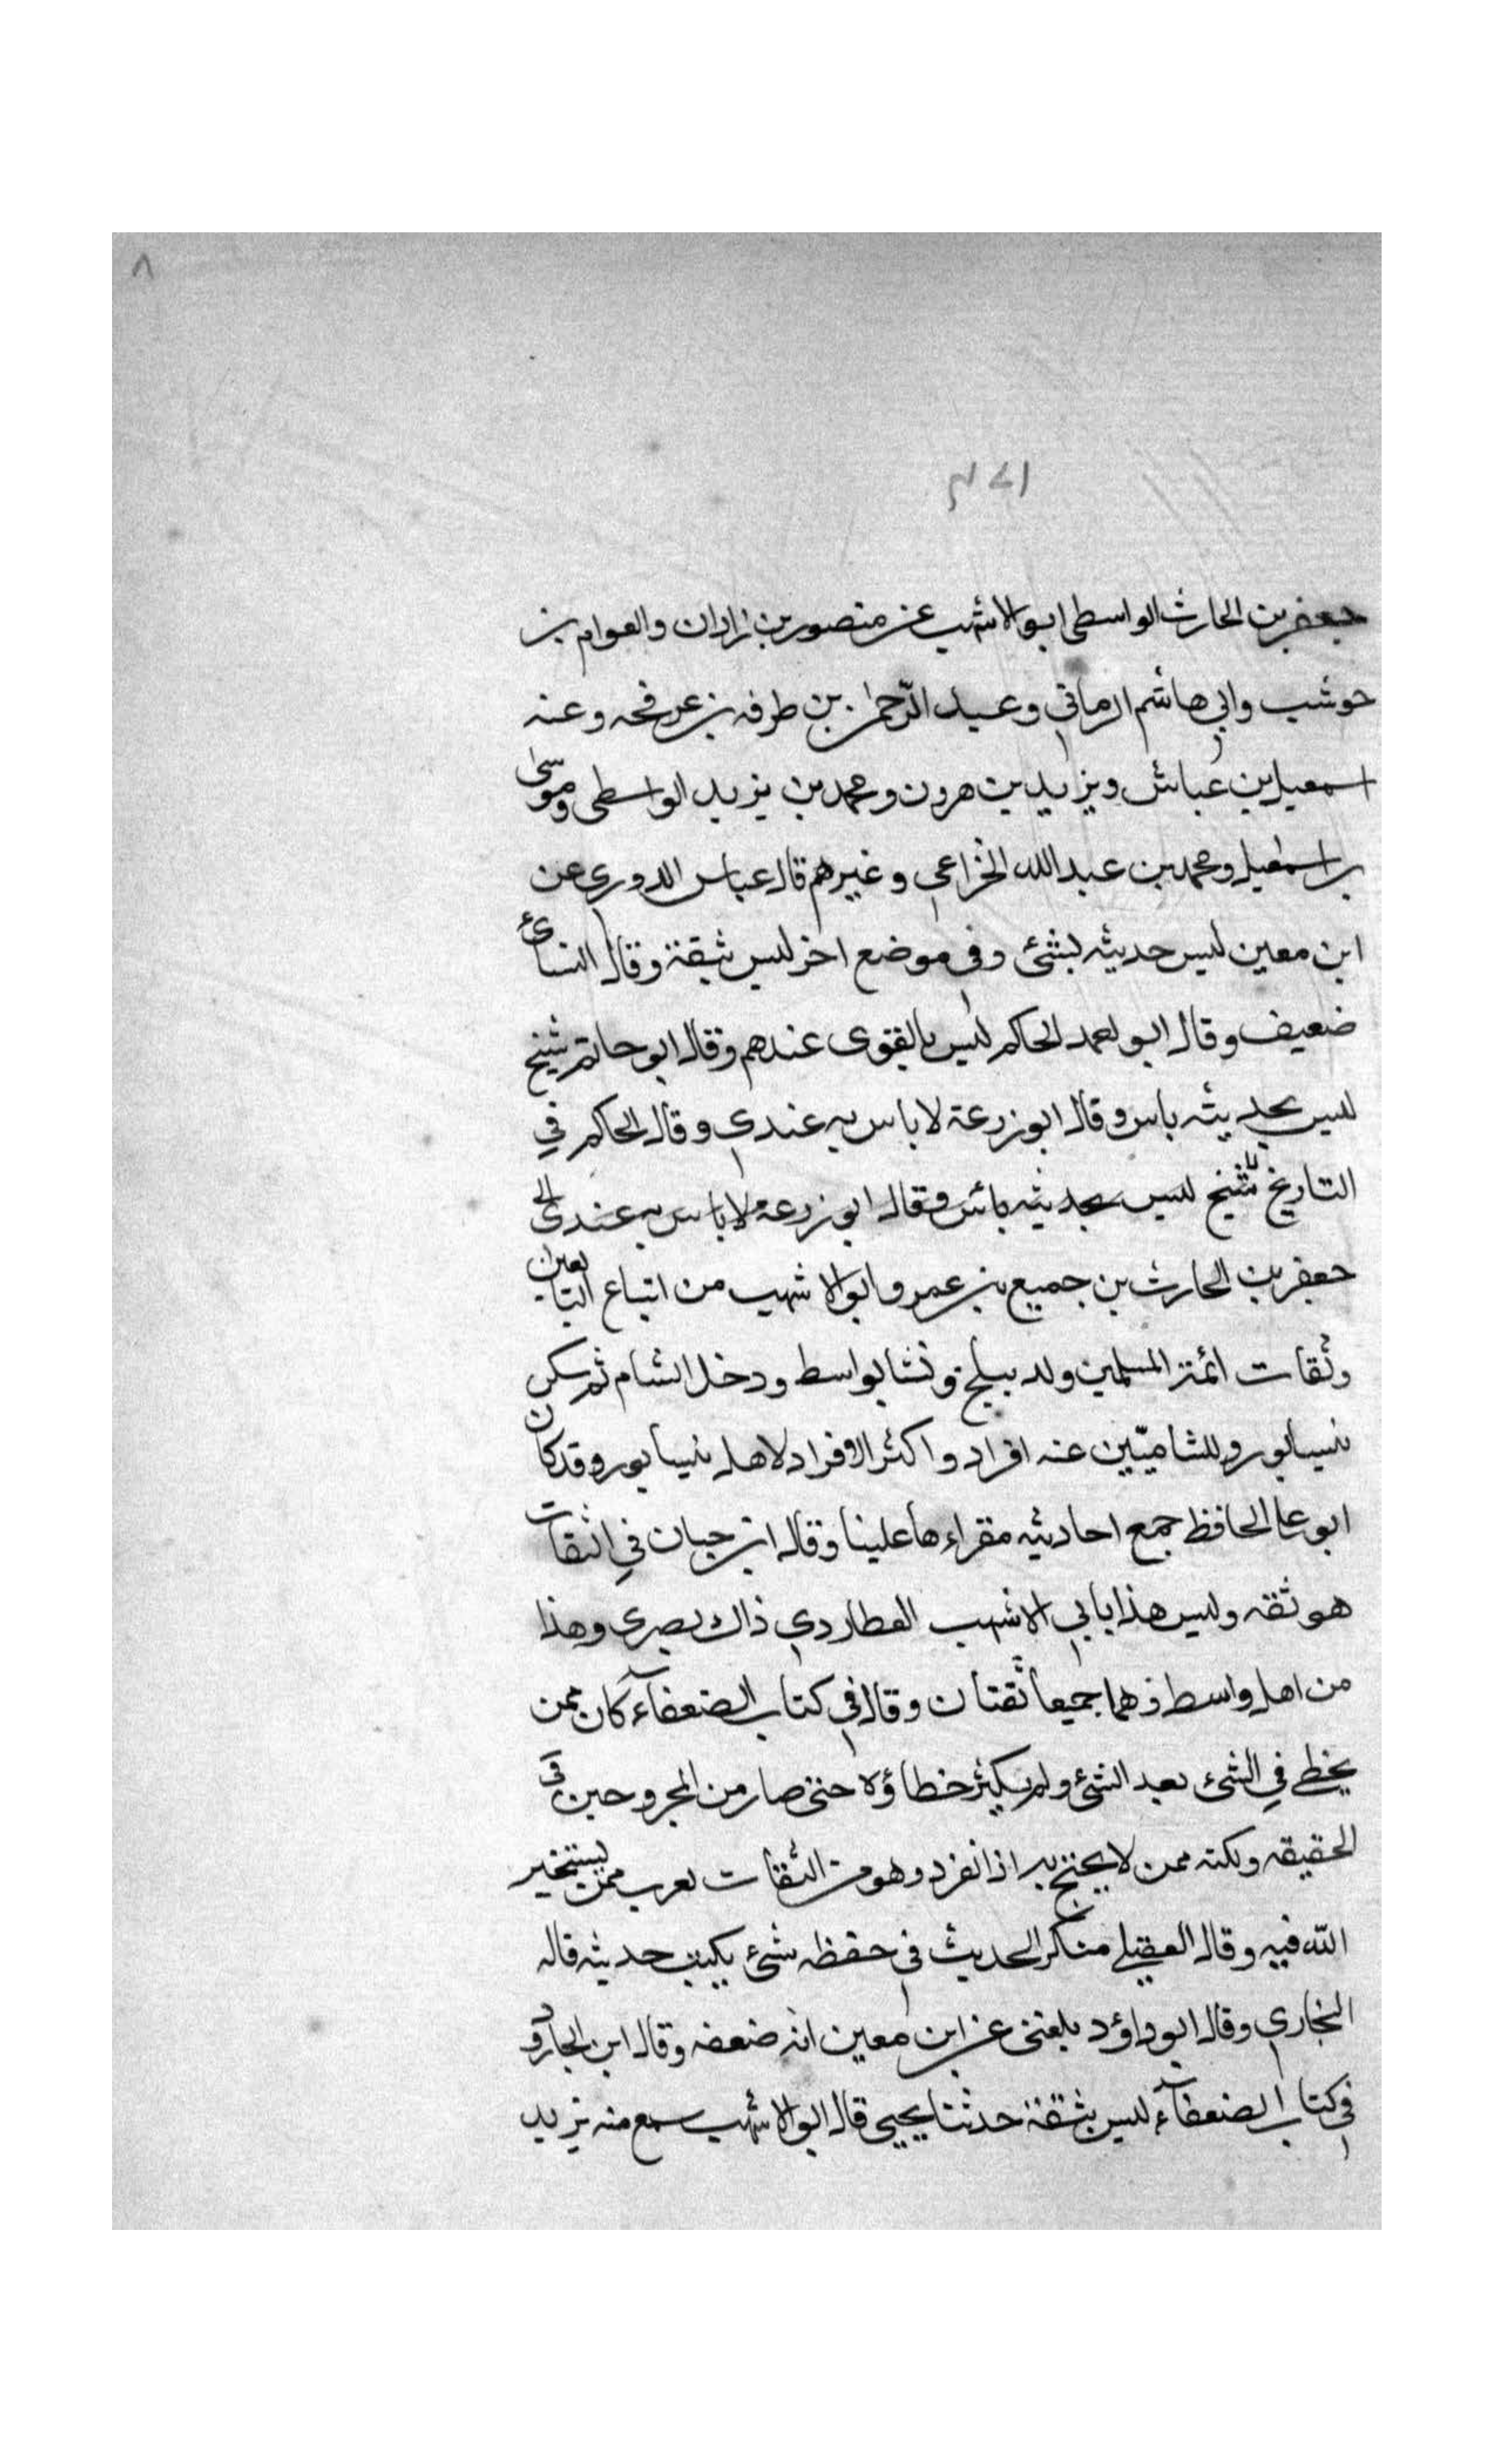 ٨
جعفر بن الحارث الواسطي ابو الاشهب عن منصور بن زاذان والعوام بن
حوشب وابي هاشم الرماني وعبد الرحمن بن طرفه بن عرفجه وعنه
اسمعيل بن عياش ويزيد بن هرون ومحمد بن يزيد الواسطى وموسى
بن اسمعيل ومحمد بن عبد الله الخزاعي وغيرهم قال عباس الدوري عن
ابن معين ليس حديثه بشئ وفي موضع اخر ليس بثقة وقال النسائ
ضعيف وقال ابو احمد الحاكم ليس بالقوى عندهم وقال ابو حاتم شيخ
ليس بحديثه باس وقال ابو زرعة لا باس به عندي وقال الحاكم في
التاريخ شيخ ليس بحديثه بائس وقال ابو زرعة لا باس به عندي
جعفر بن الحارث بن جميع بن عمرو ابو الاشهب من اتباع التابعين
وثقات ائمة المسلمين ولد ببلخ ونشا بواسط ودخل الشام ثم سكن
نيسابور وللشاميّين عنه افراد واكثر الافراد لاهل نيسابور وقد كان
ابو علي الحافظ جمع احاديثه مقراءها علينا وقال ابن حبان في الثقات
هو ثقه وليس هذا بابي الاشهب العطاردي ذاك بصرى وهذا
من اهل واسط وهما جميعا ثقتان وقال في كتاب الضعفآء كان ممن
يخطى في الشئ بعد الشئ ولم يكثر خطاؤه حتى صار من المجروحين في
الحقيقه ولكنه ممن لا يحتج به اذا انفرد وهو من الثقات يقرب ممن يستخير
الله فيه وقال العقيلي منكر الحديث في حفظه شئ يكتب حديثه قاله
البخاري وقال ابو داؤد بلغني عن ابن معين انه ضعفه وقال ابن الجارود
في كتاب الضعفآء ليس بثقة حدثنا يحيى قال ابو الاشهب سمع منه يزيد